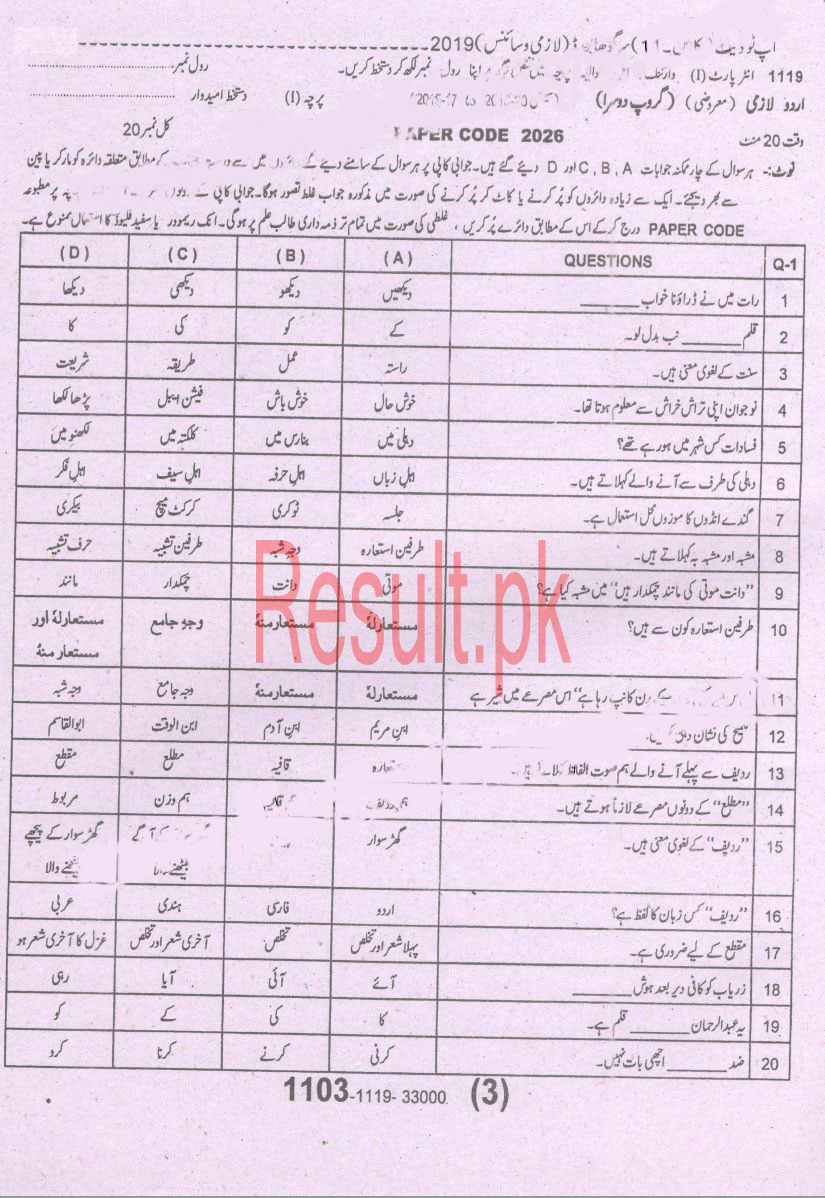 اپ ٹو ڈیٹ (لازمی و سائنس) 2019
1119 انٹر پارٹ (I) پرچہ میں اپنا رول نمبر لکھ کر دستخط کریں۔ رول نمبر
اردو لازمی (معروضی) (گروپ دوسرا) پرچہ (I) دستخط امیدوار
وقت 20 منٹ PAPER CODE 2026 کل نمبر 20
نوٹ:- ہر سوال کے چار ممکنہ جوابات A , B , C اور D دیئے گئے ہیں۔ جوابی کاپی پر ہر سوال کے سامنے دیئے گئے دائروں میں سے کے مطابق متعلقہ دائرہ کو مارکر یا پین
سے بھر دیجئے۔ ایک سے زیادہ دائروں کو پُر کرنے یا کاٹ کر پُر کرنے کی صورت میں مذکورہ جواب غلط تصور ہوگا۔ جوابی کاپی کے پر مطبوعہ
PAPER CODE درج کر کے اس کے مطابق دائرے پُر کریں ، غلطی کی صورت میں تمام تر ذمہ داری طالب علم پر ہوگی۔ انک ریموور یا سفید فلیوڈ کا استعمال ممنوع ہے۔
Q-1 QUESTIONS (A) (B) (C) (D)
1 رات میں نے ڈراؤنا خواب ______ دیکھیں دیکھو دیکھی دیکھا
2 قلم ______ نب بدل لو۔ کے کو کی کا
3 سنت کے لغوی معنی ہیں۔ راستہ عمل طریقہ شریعت
4 نوجوان اپنی تراش خراش سے معلوم ہوتا تھا۔ خوش حال خوش باش فیشن ایبل پڑھا لکھا
5 فسادات کس شہر میں ہو رہے تھے؟ دہلی میں بنارس میں کلکتہ میں لکھنو میں
6 دہلی کی طرف سے آنے والے کہلاتے ہیں۔ اہل زباں اہل حرفہ اہل سیف اہل فکر
7 گندے انڈوں کا موزوں محل استعمال ہے۔ جلسہ ٹوکری کرکٹ میچ بیکری
8 مشبہ اور مشبہ بہ کہلاتے ہیں۔ طرفین استعارہ وجہ شبہ طرفین تشبیہ حرف تشبیہ
9 "دانت موتی کی مانند چمکدار ہیں" میں مشبہ کیا ہے؟ موتی دانت چمکدار مانند
10 طرفین استعارہ کون سے ہیں؟ مستعارلہٗ مستعارمنہٗ وجہ جامع مستعارلہٗ اور
مستعارمنہٗ
11 رن کانپ رہا ہے" اس مصرعے میں شیر ہے مستعارلہٗ مستعارمنہٗ وجہ جامع وجہ شبہ
12 کی نشان ابن مریم ابن آدم ابن الوقت ابوالقاسم
13 ردیف سے پہلے آنے والے ہم صوت الفاظ کہلاتے ہیں۔ قافیہ مطلع مقطع
14 "مطلع" کے دونوں مصرعے لازماً ہوتے ہیں۔ ہم ردیف قافیہ ہم وزن مربوط
15 "ردیف" کے لغوی معنی ہیں۔ گھڑ سوار آگے گھڑ سوار کے پیچھے
بیٹھنے بیٹھنے والا
16 "ردیف" کس زبان کا لفظ ہے؟ اردو فارسی ہندی عربی
17 مقطع کے لیے ضروری ہے۔ پہلا شعر اور تخلص تخلص آخری شعر اور تخلص غزل کا آخری شعر ہو
18 زریاب کو کافی دیر بعد ہوش ______ آئے آئی آیا رہی
19 یہ عبدالرحمان ______ قلم ہے۔ کا کی کے کو
20 ضد ______ اچھی بات نہیں۔ کرنی کرنے کرنا کرو
1103-1119-33000 (3)
Result.pk